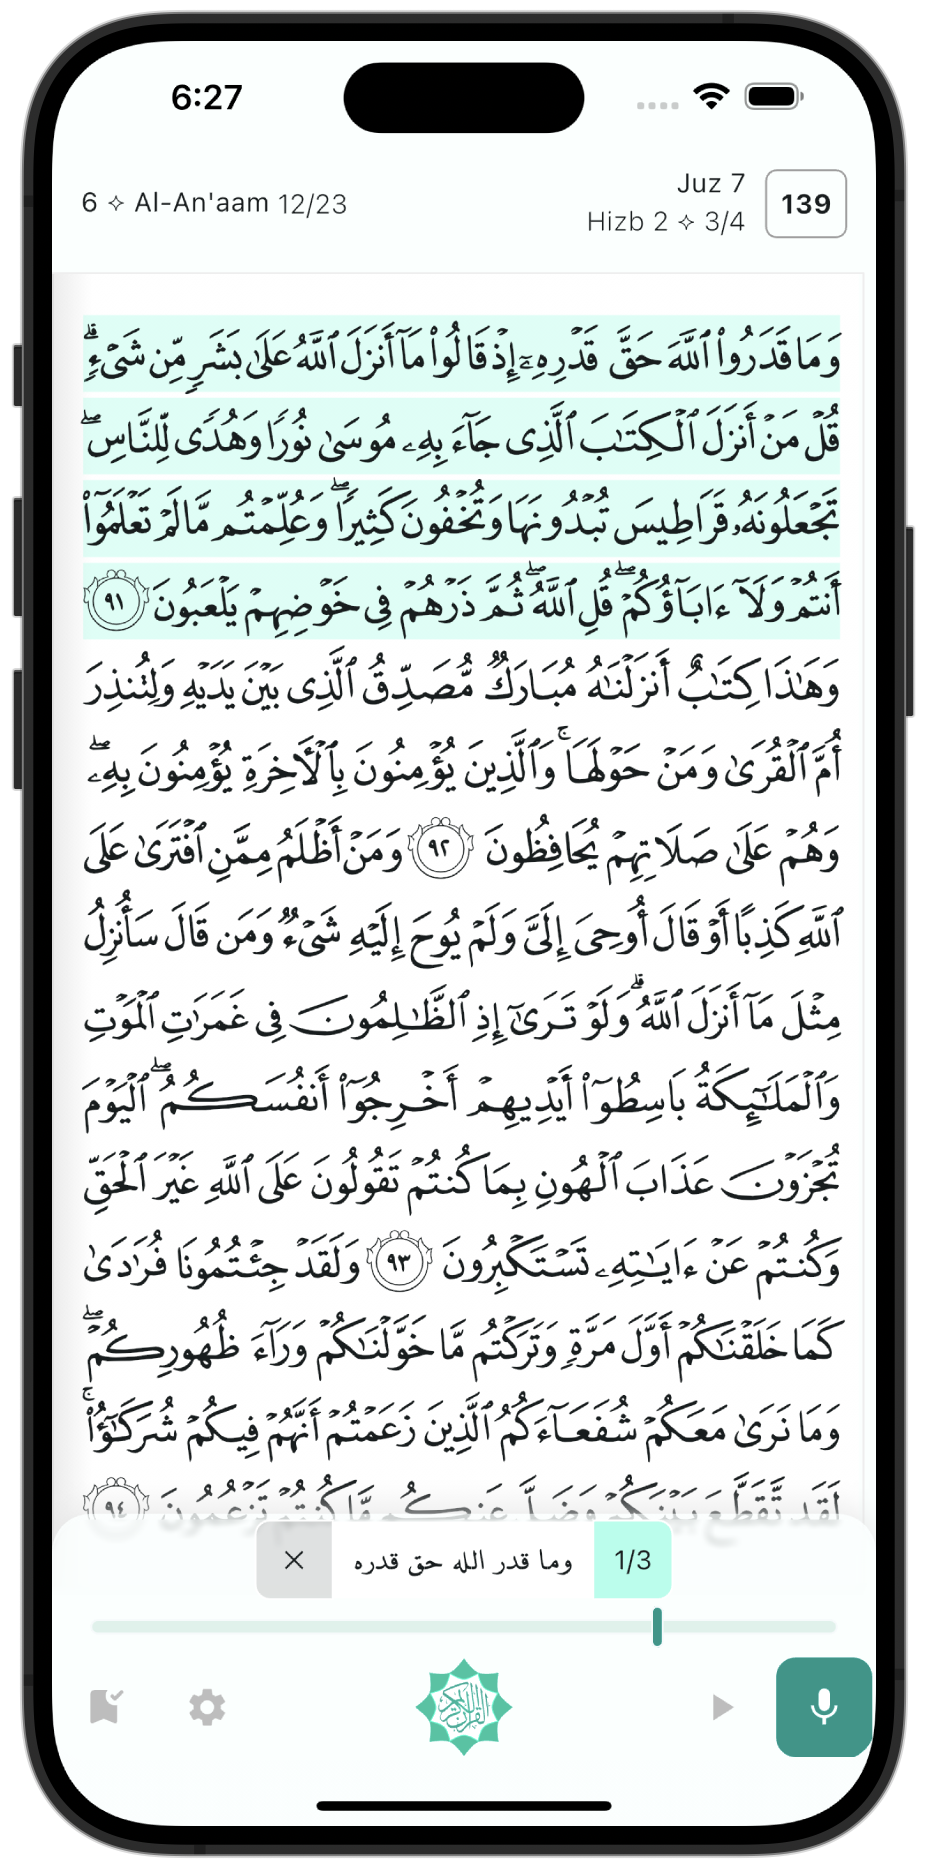 6:27
6 ✧ Al-An'aam 12/23
Juz 7
Hizb 2 ✧ 3/4
139
وَمَا قَدَرُوا۟ ٱللَّهَ حَقَّ قَدْرِهِۦٓ إِذْ قَالُوا۟ مَآ أَنزَلَ ٱللَّهُ عَلَىٰ بَشَرٍ مِّن شَىْءٍ ۗ
قُلْ مَنْ أَنزَلَ ٱلْكِتَـٰبَ ٱلَّذِى جَآءَ بِهِۦ مُوسَىٰ نُورًا وَهُدًى لِّلنَّاسِ ۖ
تَجْعَلُونَهُۥ قَرَاطِيسَ تُبْدُونَهَا وَتُخْفُونَ كَثِيرًا ۖ وَعُلِّمْتُم مَّا لَمْ تَعْلَمُوٓا۟
أَنتُمْ وَلَآ ءَابَآؤُكُمْ ۖ قُلِ ٱللَّهُ ۖ ثُمَّ ذَرْهُمْ فِى خَوْضِهِمْ يَلْعَبُونَ ٩١
وَهَـٰذَا كِتَـٰبٌ أَنزَلْنَـٰهُ مُبَارَكٌ مُّصَدِّقُ ٱلَّذِى بَيْنَ يَدَيْهِ وَلِتُنذِرَ
أُمَّ ٱلْقُرَىٰ وَمَنْ حَوْلَهَا ۚ وَٱلَّذِينَ يُؤْمِنُونَ بِٱلْـَٔاخِرَةِ يُؤْمِنُونَ بِهِۦ ۖ
وَهُمْ عَلَىٰ صَلَاتِهِمْ يُحَافِظُونَ ٩٢ وَمَنْ أَظْلَمُ مِمَّنِ ٱفْتَرَىٰ عَلَى
ٱللَّهِ كَذِبًا أَوْ قَالَ أُوحِىَ إِلَىَّ وَلَمْ يُوحَ إِلَيْهِ شَىْءٌ وَمَن قَالَ سَأُنزِلُ
مِثْلَ مَآ أَنزَلَ ٱللَّهُ ۗ وَلَوْ تَرَىٰٓ إِذِ ٱلظَّـٰلِمُونَ فِى غَمَرَٰتِ ٱلْمَوْتِ
وَٱلْمَلَـٰٓئِكَةُ بَاسِطُوٓا۟ أَيْدِيهِمْ أَخْرِجُوٓا۟ أَنفُسَكُمُ ۖ ٱلْيَوْمَ
تُجْزَوْنَ عَذَابَ ٱلْهُونِ بِمَا كُنتُمْ تَقُولُونَ عَلَى ٱللَّهِ غَيْرَ ٱلْحَقِّ
وَكُنتُمْ عَنْ ءَايَـٰتِهِۦ تَسْتَكْبِرُونَ ٩٣ وَلَقَدْ جِئْتُمُونَا فُرَٰدَىٰ
كَمَا خَلَقْنَـٰكُمْ أَوَّلَ مَرَّةٍ وَتَرَكْتُم مَّا خَوَّلْنَـٰكُمْ وَرَآءَ ظُهُورِكُمْ ۖ
وَمَا نَرَىٰ مَعَكُمْ شُفَعَآءَكُمُ ٱلَّذِينَ زَعَمْتُمْ أَنَّهُمْ فِيكُمْ شُرَكَـٰٓؤُا۟ ۚ
لَقَد تَّقَطَّعَ بَيْنَكُمْ وَضَلَّ عَنكُم مَّا كُنتُمْ تَزْعُمُونَ ٩٤
وما قدر الله حق قدره
1/3
القرآن الكريم